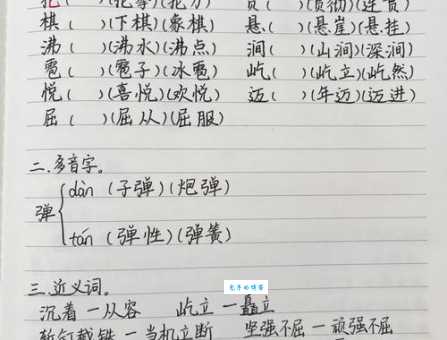 棋( )(下棋)(象棋) 悬( )(悬崖)(悬挂)
沸( )(沸水)(沸点) 涧( )(山涧)(深涧)
雹( )(雹子)(冰雹) 屹( )(屹立)(屹然)
悦( )(喜悦)(欢悦) 迈( )(年迈)(迈进)
屈( )(屈从)(屈服)
二.多音字.
dàn (子弹)(炮弹)
弹
tán (弹性)(弹簧)
三.近义词.
沉着—从容 屹立—矗立
斩钉截铁—当机立断 坚强不屈—顽强不屈